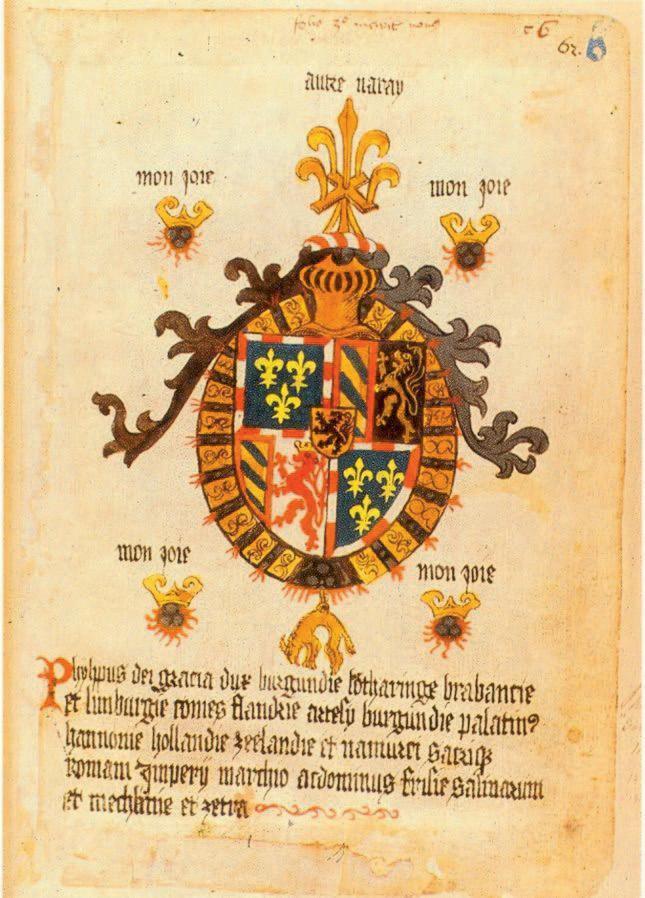 autre naray
mon joie
mon joie
mon joie
mon joie
Phylipus dei gracia dux burgundie lotharinge brabantie
et limburgie comes flandrie artesy burgundie palatin9
hannonie hollandie zeelandie et namurci sacriq3
Romani Imperij marchio ac dominus frisie salinarum
et mechlinie et zetra